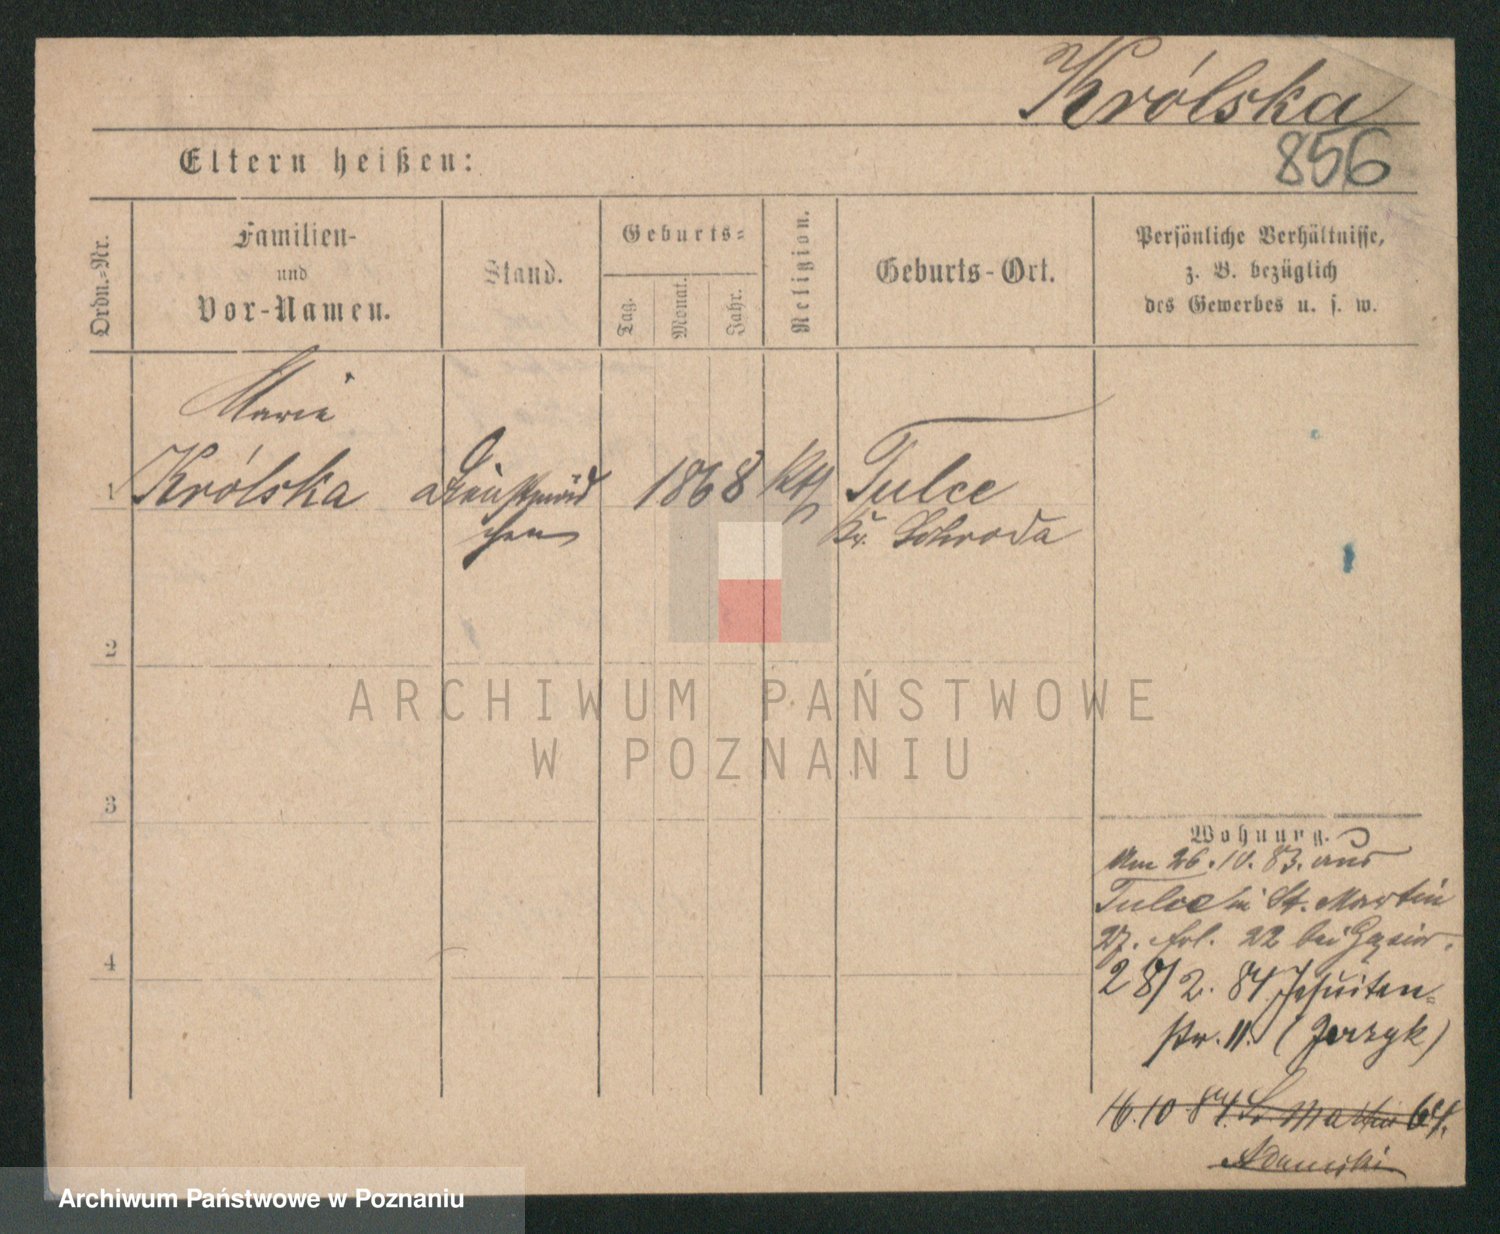 Królska
856
Eltern heißen:
Ordn.-Nr.
Familien-
und
Vor-Namen.
Stand.
Geburts-
Tag.
Monat.
Jahr.
Religion.
Geburts-Ort.
Persönliche Verhältnisse,
z. B. bezüglich
des Gewerbes u. s. w.
Marie
1 Królska Dienstmäd 1868 kth Tulce
chen Kr. Schroda
2
ARCHIWUM PAŃSTWOWE
W POZNANIU
3
Wohnung.
Am 26.10.83. aus
Tulce in St. Martin
27. frl. 22 bei
4
28/2. 84 Jesuiten-
str. 11. (Jerzyk)
16.10.84. St. Martin 64.
Adamski
Archiwum Państwowe w Poznaniu